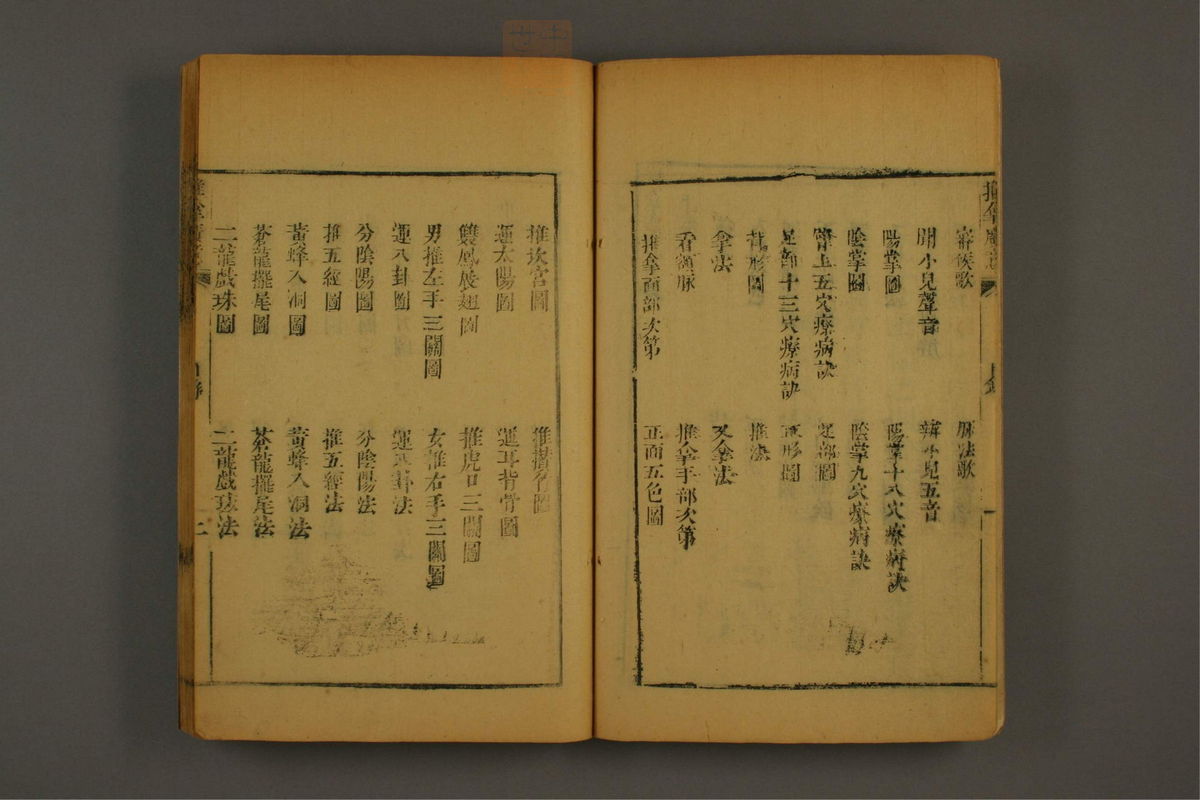 審候歌 脈法歌
聽小兒聲音 辨小兒五音
陽掌圖 陽掌十八穴療病訣
陰掌圖 陰掌九穴療病訣
臂上五穴療病訣 足部圖
足部十三穴療病訣 正形圖
背形圖 推法
拿法 又拿法
看額脉 推拿手部次第
推拿面部次第 正面五色圖
目錄 一
推坎宮圖 推攢竹圖
運太陽圖 運耳背骨圖
雙鳳展翅圖 推虎口三關圖
男推左手三關圖 女推右手三關圖
運八卦圖 運八卦法
分陰陽圖 分陰陽法
推五經圖 推五經法
黃蜂入洞圖 黃蜂入洞法
蒼龍擺尾圖 蒼龍擺尾法
二龍戲珠圖 二龍戲珠法
目錄 二